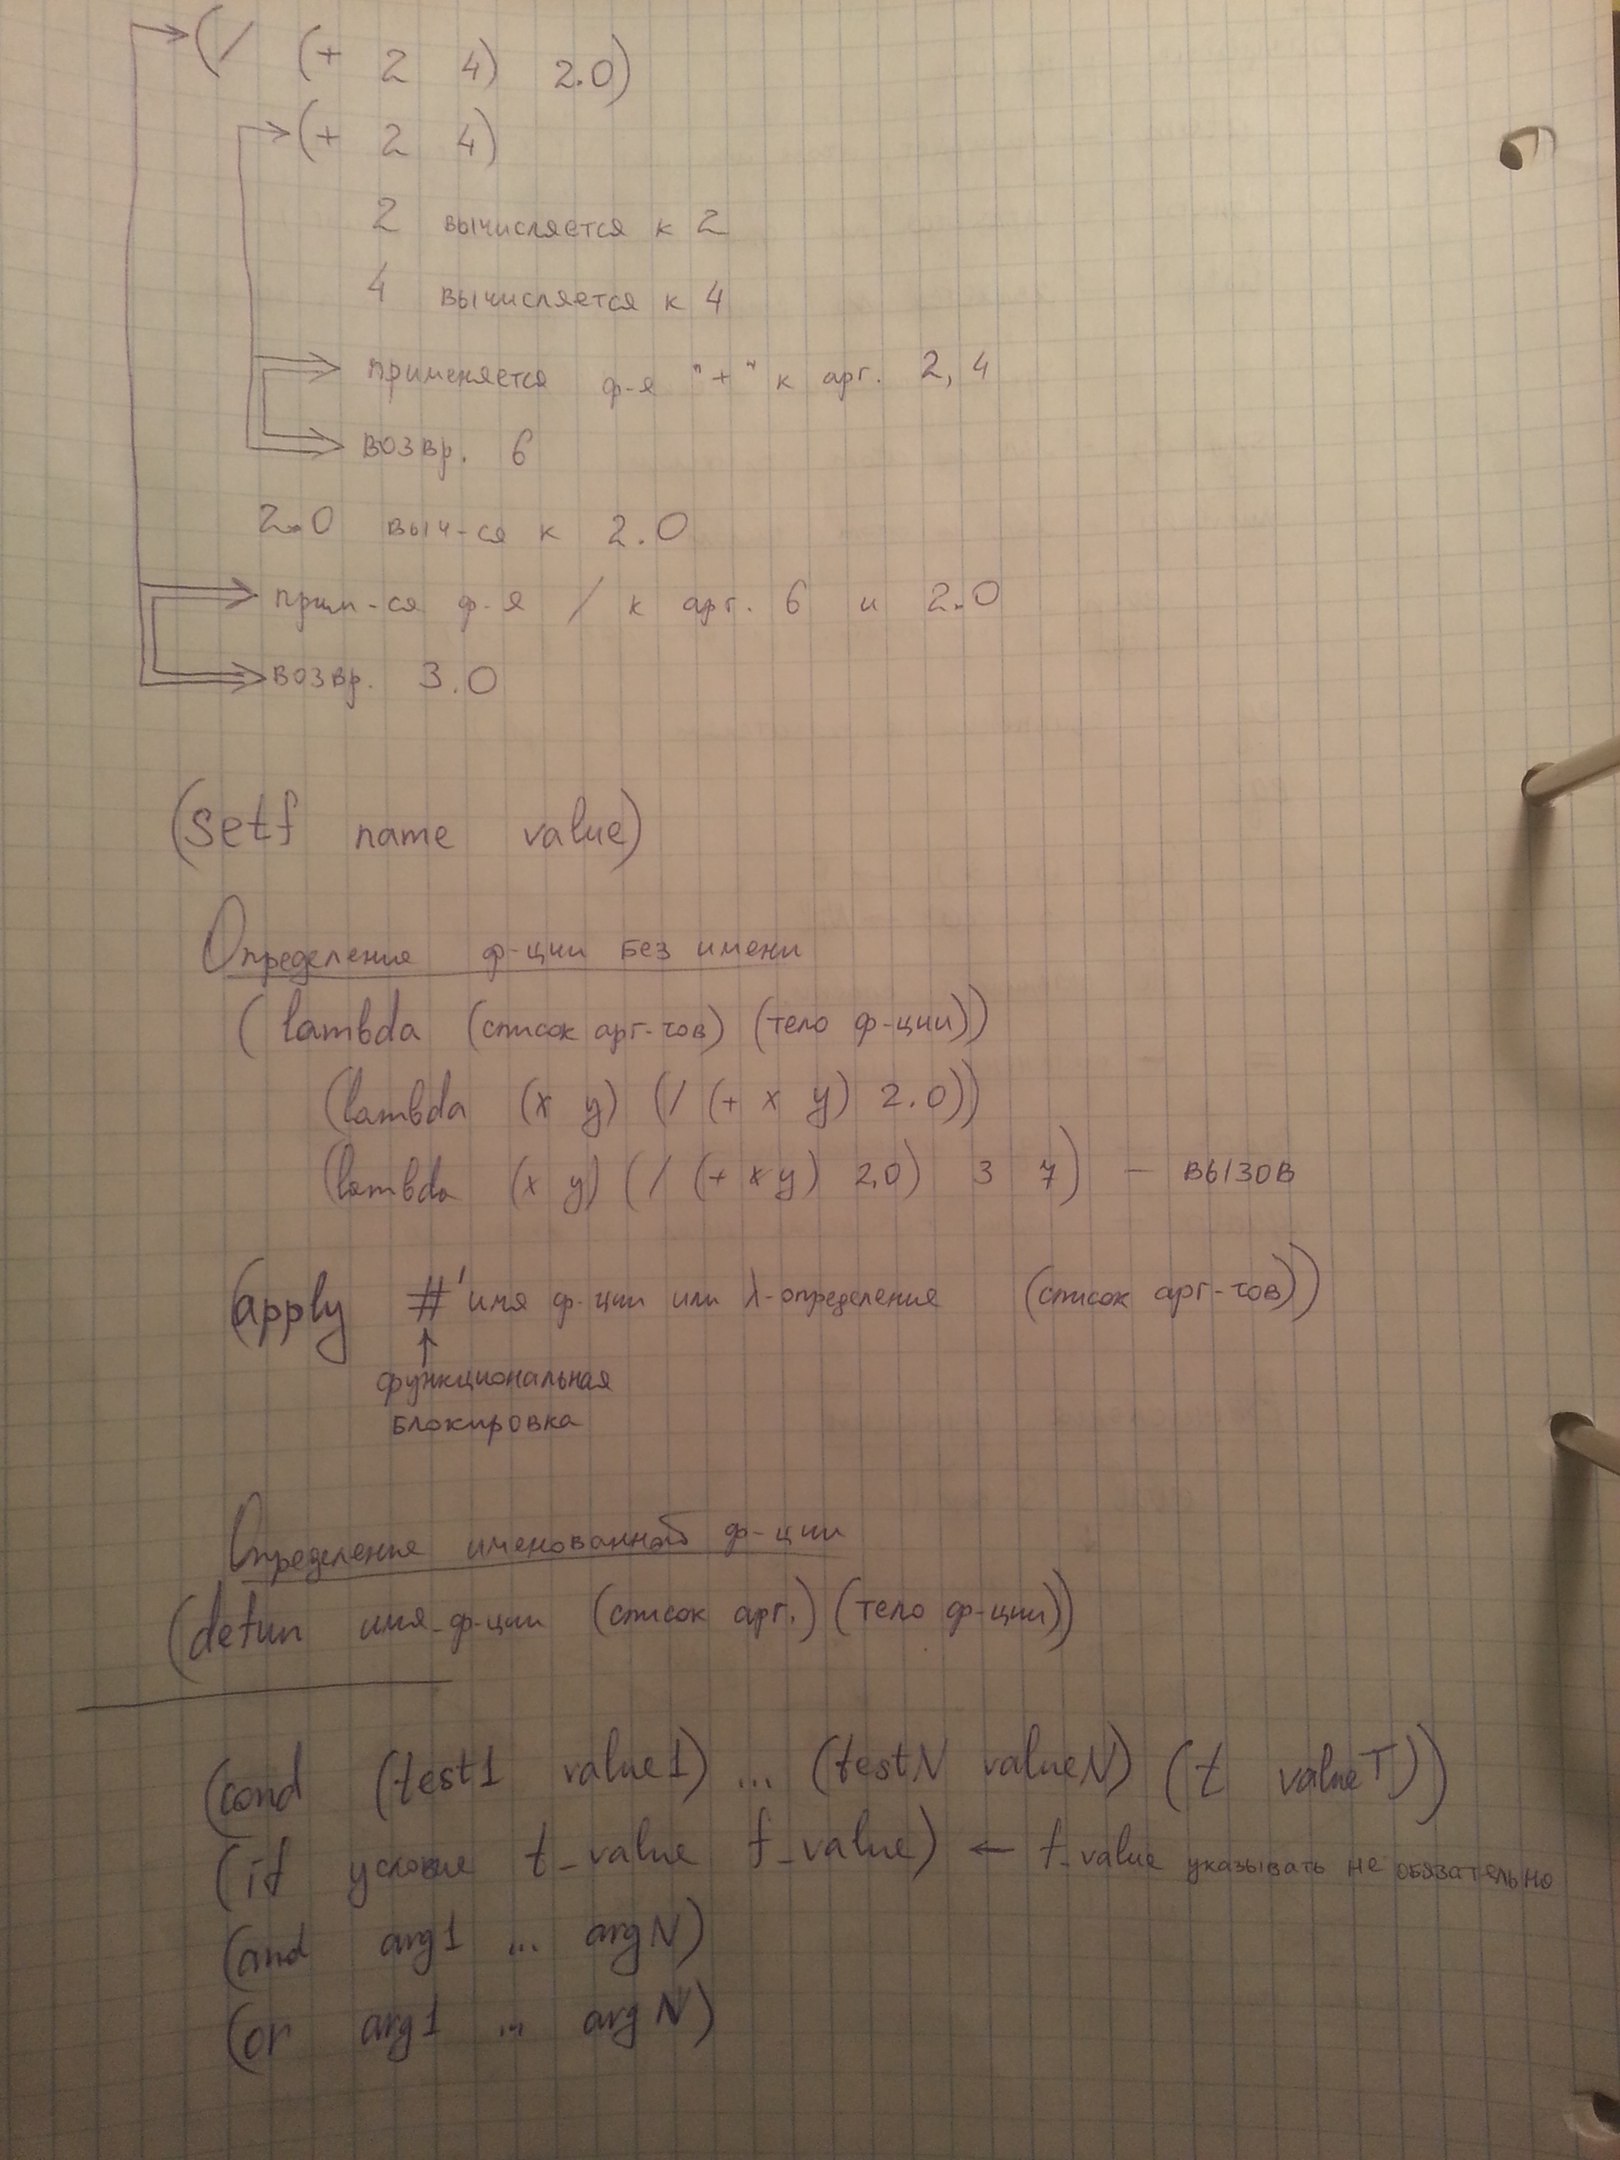 (/ (+ 2 4) 2.0)
(+ 2 4)
2 вычисляется к 2
4 вычисляется к 4
применяется ф-я "+" к арг. 2, 4
возвр. 6
2.0 выч-ся к 2.0
прим-ся ф-я / к арг. 6 и 2.0
возвр. 3.0
(setf name value)
Определение ф-ции без имени
(lambda (список арг-тов) (тело ф-ции))
(lambda (x y) (/ (+ x y) 2.0))
(lambda (x y) (/ (+ x y) 2.0) 3 7) — вызов
(apply #'имя ф-ции или λ-определение (список арг-тов))
↑
функциональная
блокировка
Определение именованной ф-ции
(defun имя_ф-ции (список арг.) (тело ф-ции))
(cond (test1 value1) ... (testN valueN) (t valueT))
(if условие t_value f_value) ← f_value указывать не обязательно
(and arg1 ... argN)
(or arg1 ... argN)